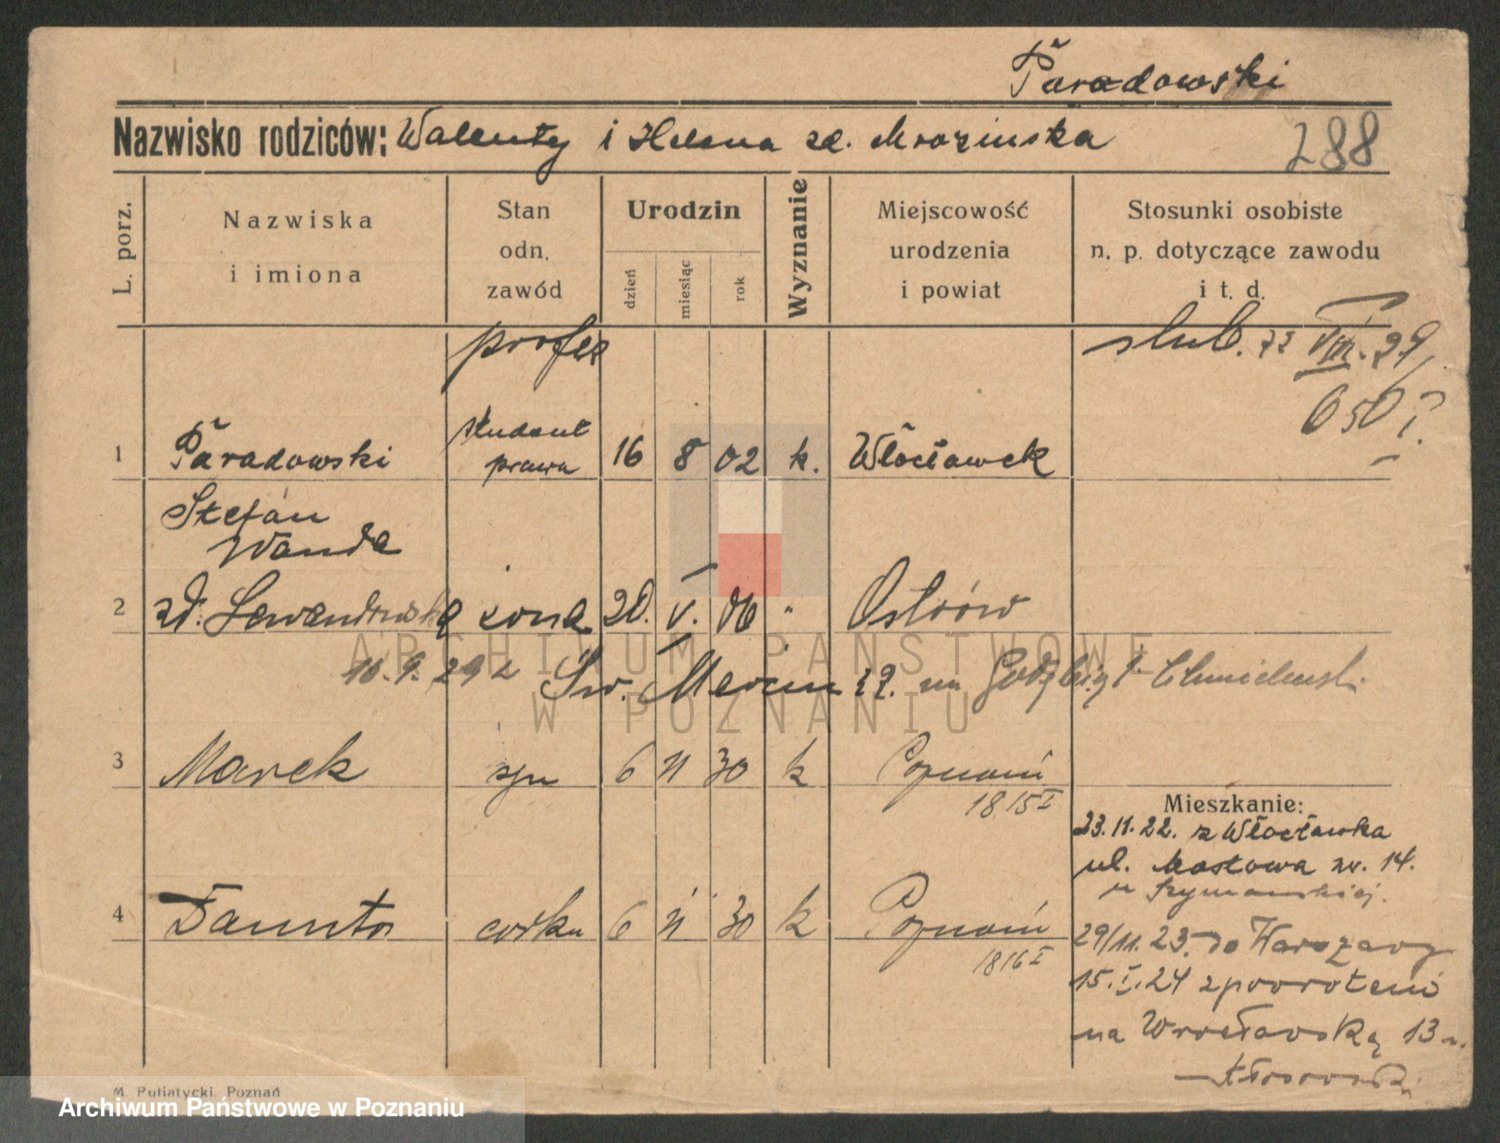 Paradowski
Nazwisko rodziców: Walenty i Helena zd. Mrozinska
288
L. porz.
Nazwiska
i imiona
Stan
odn.
zawód
Urodzin
dzień
miesiąc
rok
Wyznanie
Miejscowość
urodzenia
i powiat
Stosunki osobiste
n. p. dotyczące zawodu
i t. d.
profes
slub. 22 VIII. 29
650 I.
1 Paradowski student prawa 16 8 02 k. Włocławek
Stefan
Wanda
2 zd. Lewandowska żona 20. V. 06 " Ostrów
10.9.29 z Św. Marcin 22. na
3 Marek syn 6 II 30 k Poznań
1815 I
Mieszkanie:
23.11.22. z Włocławka
ul. Mostowa nr. 14.
u Szymanskiej.
4 Danuta córka 6 II 30 k Poznań
1816 I
29/11.23. do Warszawy
15.I.24 z powrotem
na Wrocławską 13 u.
M. Putiatycki, Poznań
ARCHIWUM PAŃSTWOWE
W POZNANIU
Archiwum Państwowe w Poznaniu